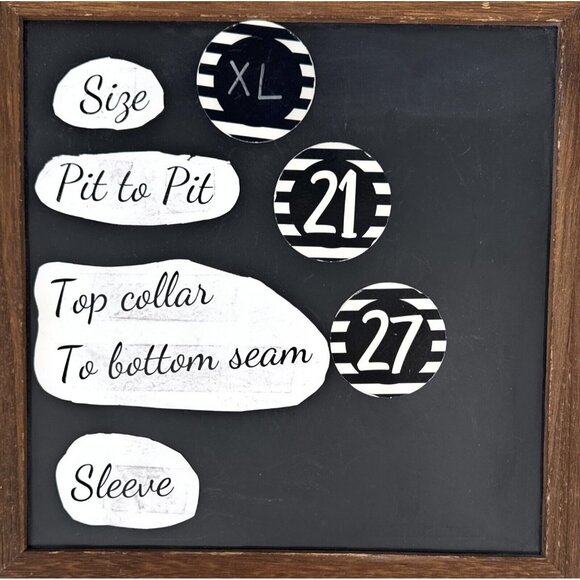 Size XL
Pit to Pit 21
Top collar
To bottom seam 27
Sleeve